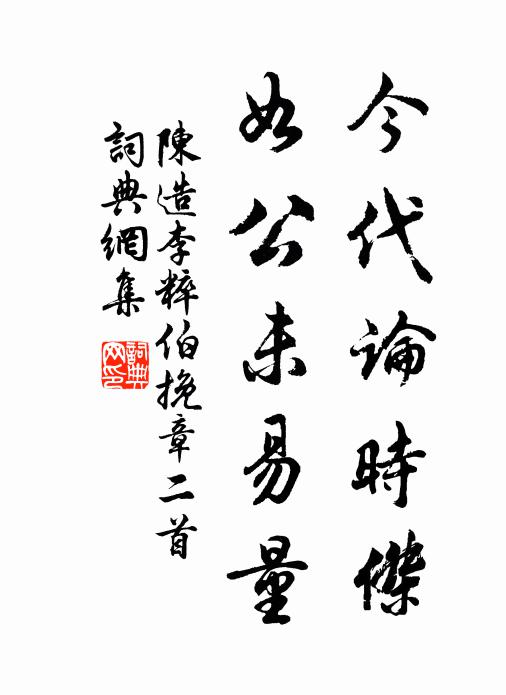 今代論時傑
如公未易量
陳造李粹伯挽章二首
詞典網集
詞典網印